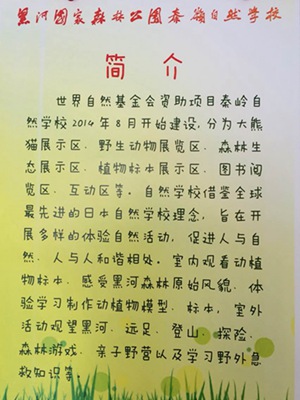 黑河国家森林公园秦岭自然学校
简 介
世界自然基金会资助项目秦岭自
然学校2014年8月开始建设，分为大熊
猫展示区、野生动物展览区、森林生
态展示区、植物标本展示区、图书阅
览区、互动区等。自然学校借鉴全球
最先进的日本自然学校理念，旨在开
展多样的体验自然活动，促进人与自
然、人与人和谐相处。室内观看动植
物标本、感受黑河森林原始风貌、体
验学习制作动植物模型、标本，室外
活动观望黑河、远足、登山、探险、
森林游戏、亲子野营以及学习野外急
救知识等。